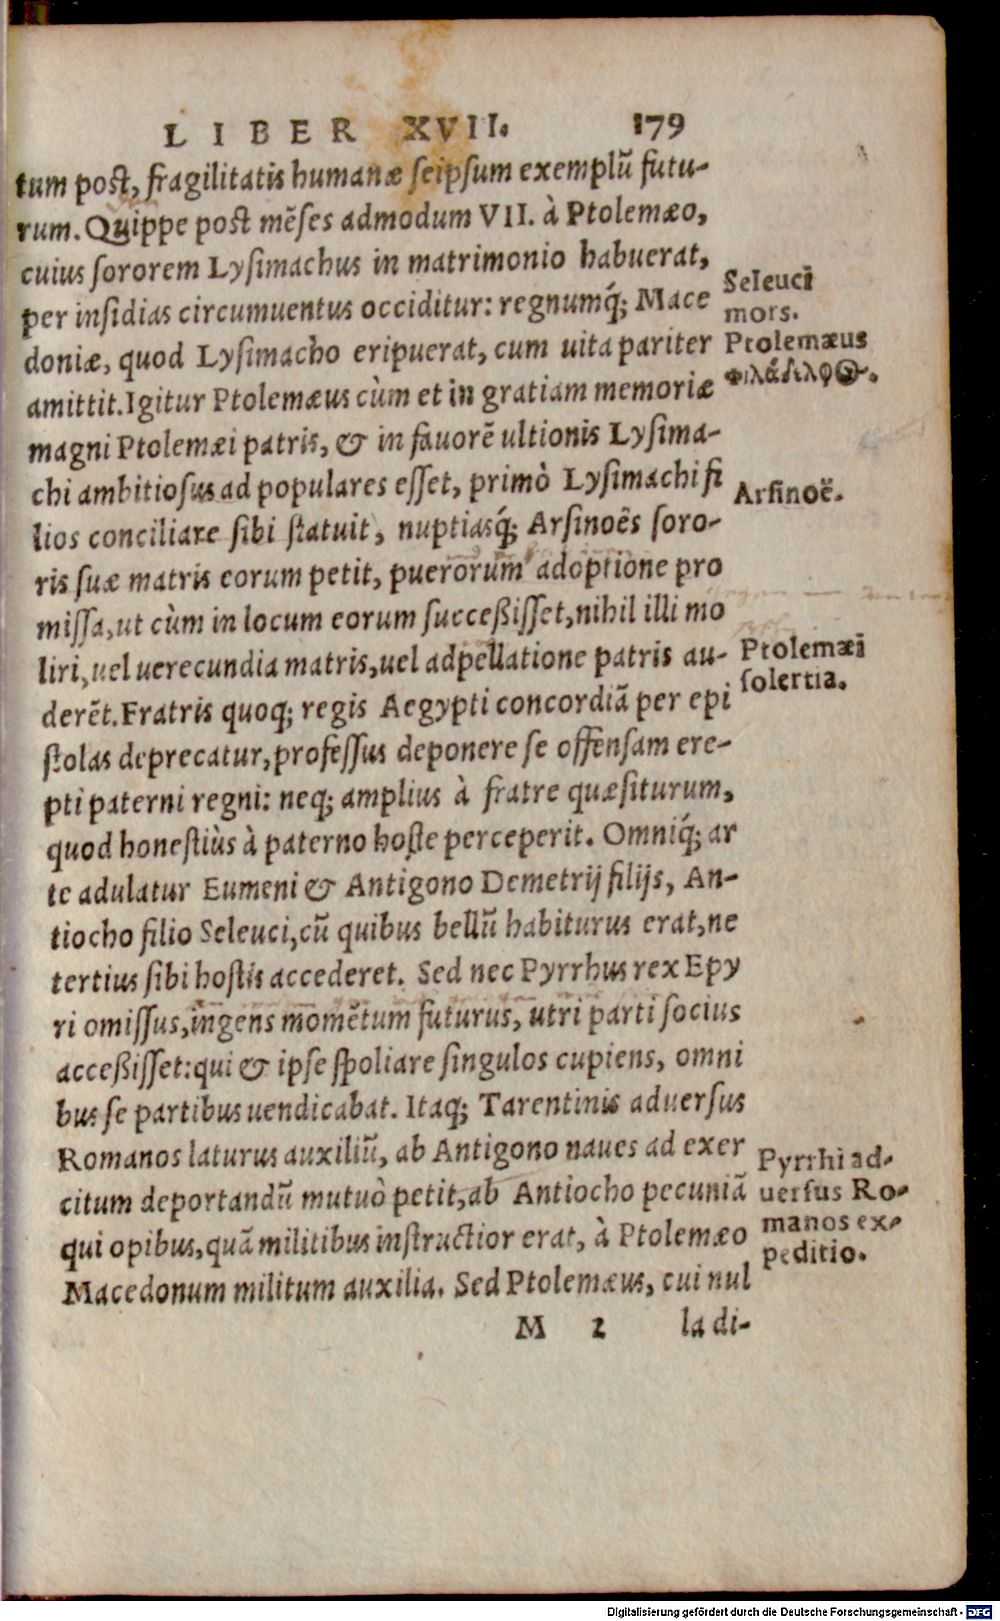 LIBER XVII. 179
tum post, fragilitatis humanæ seipsum exemplū futu-
rum. Quippe post mēses admodum VII. à Ptolemæo,
cuius sororem Lysimachus in matrimonio habuerat,
per insidias circumuentus occiditur: regnumq́; Mace
doniæ, quod Lysimacho eripuerat, cum uita pariter
amittit. Igitur Ptolemæus cùm et in gratiam memoriæ
magni Ptolemæi patris, & in fauorē ultionis Lysima-
chi ambitiosus ad populares esset, primò Lysimachi fi
lios conciliare sibi statuit, nuptiasq́; Arsinoës soro-
ris suæ matris eorum petit, puerorum adoptione pro
missa, ut cùm in locum eorum succeßisset, nihil illi mo
liri, uel uerecundia matris, uel adpellatione patris au-
derēt. Fratris quoq; regis Aegypti concordiā per epi
stolas deprecatur, professus deponere se offensam ere-
pti paterni regni: neq; amplius à fratre quæsiturum,
quod honestiùs à paterno hoste perceperit. Omniq́; ar
te adulatur Eumeni & Antigono Demetrij filijs, An-
tiocho filio Seleuci, cū quibus bellū habiturus erat, ne
tertius sibi hostis accederet. Sed nec Pyrrhus rex Epy
ri omissus, ingens momētum futurus, utri parti socius
acceßisset: qui & ipse spoliare singulos cupiens, omni
bus se partibus uendicabat. Itaq; Tarentinis aduersus
Romanos laturus auxiliū, ab Antigono naues ad exer
citum deportandū mutuò petit, ab Antiocho pecuniā
qui opibus, quā militibus instructior erat, à Ptolemæo
Macedonum militum auxilia. Sed Ptolemæus, cui nul
M 2 la di-
Seleuci
mors.
Ptolemæus
Φιλάδελφος.
Arsinoë.
Ptolemæi
solertia.
Pyrrhi ad-
uersus Ro-
manos ex-
peditio.
Digitalisierung gefördert durch die Deutsche Forschungsgemeinschaft - DFG